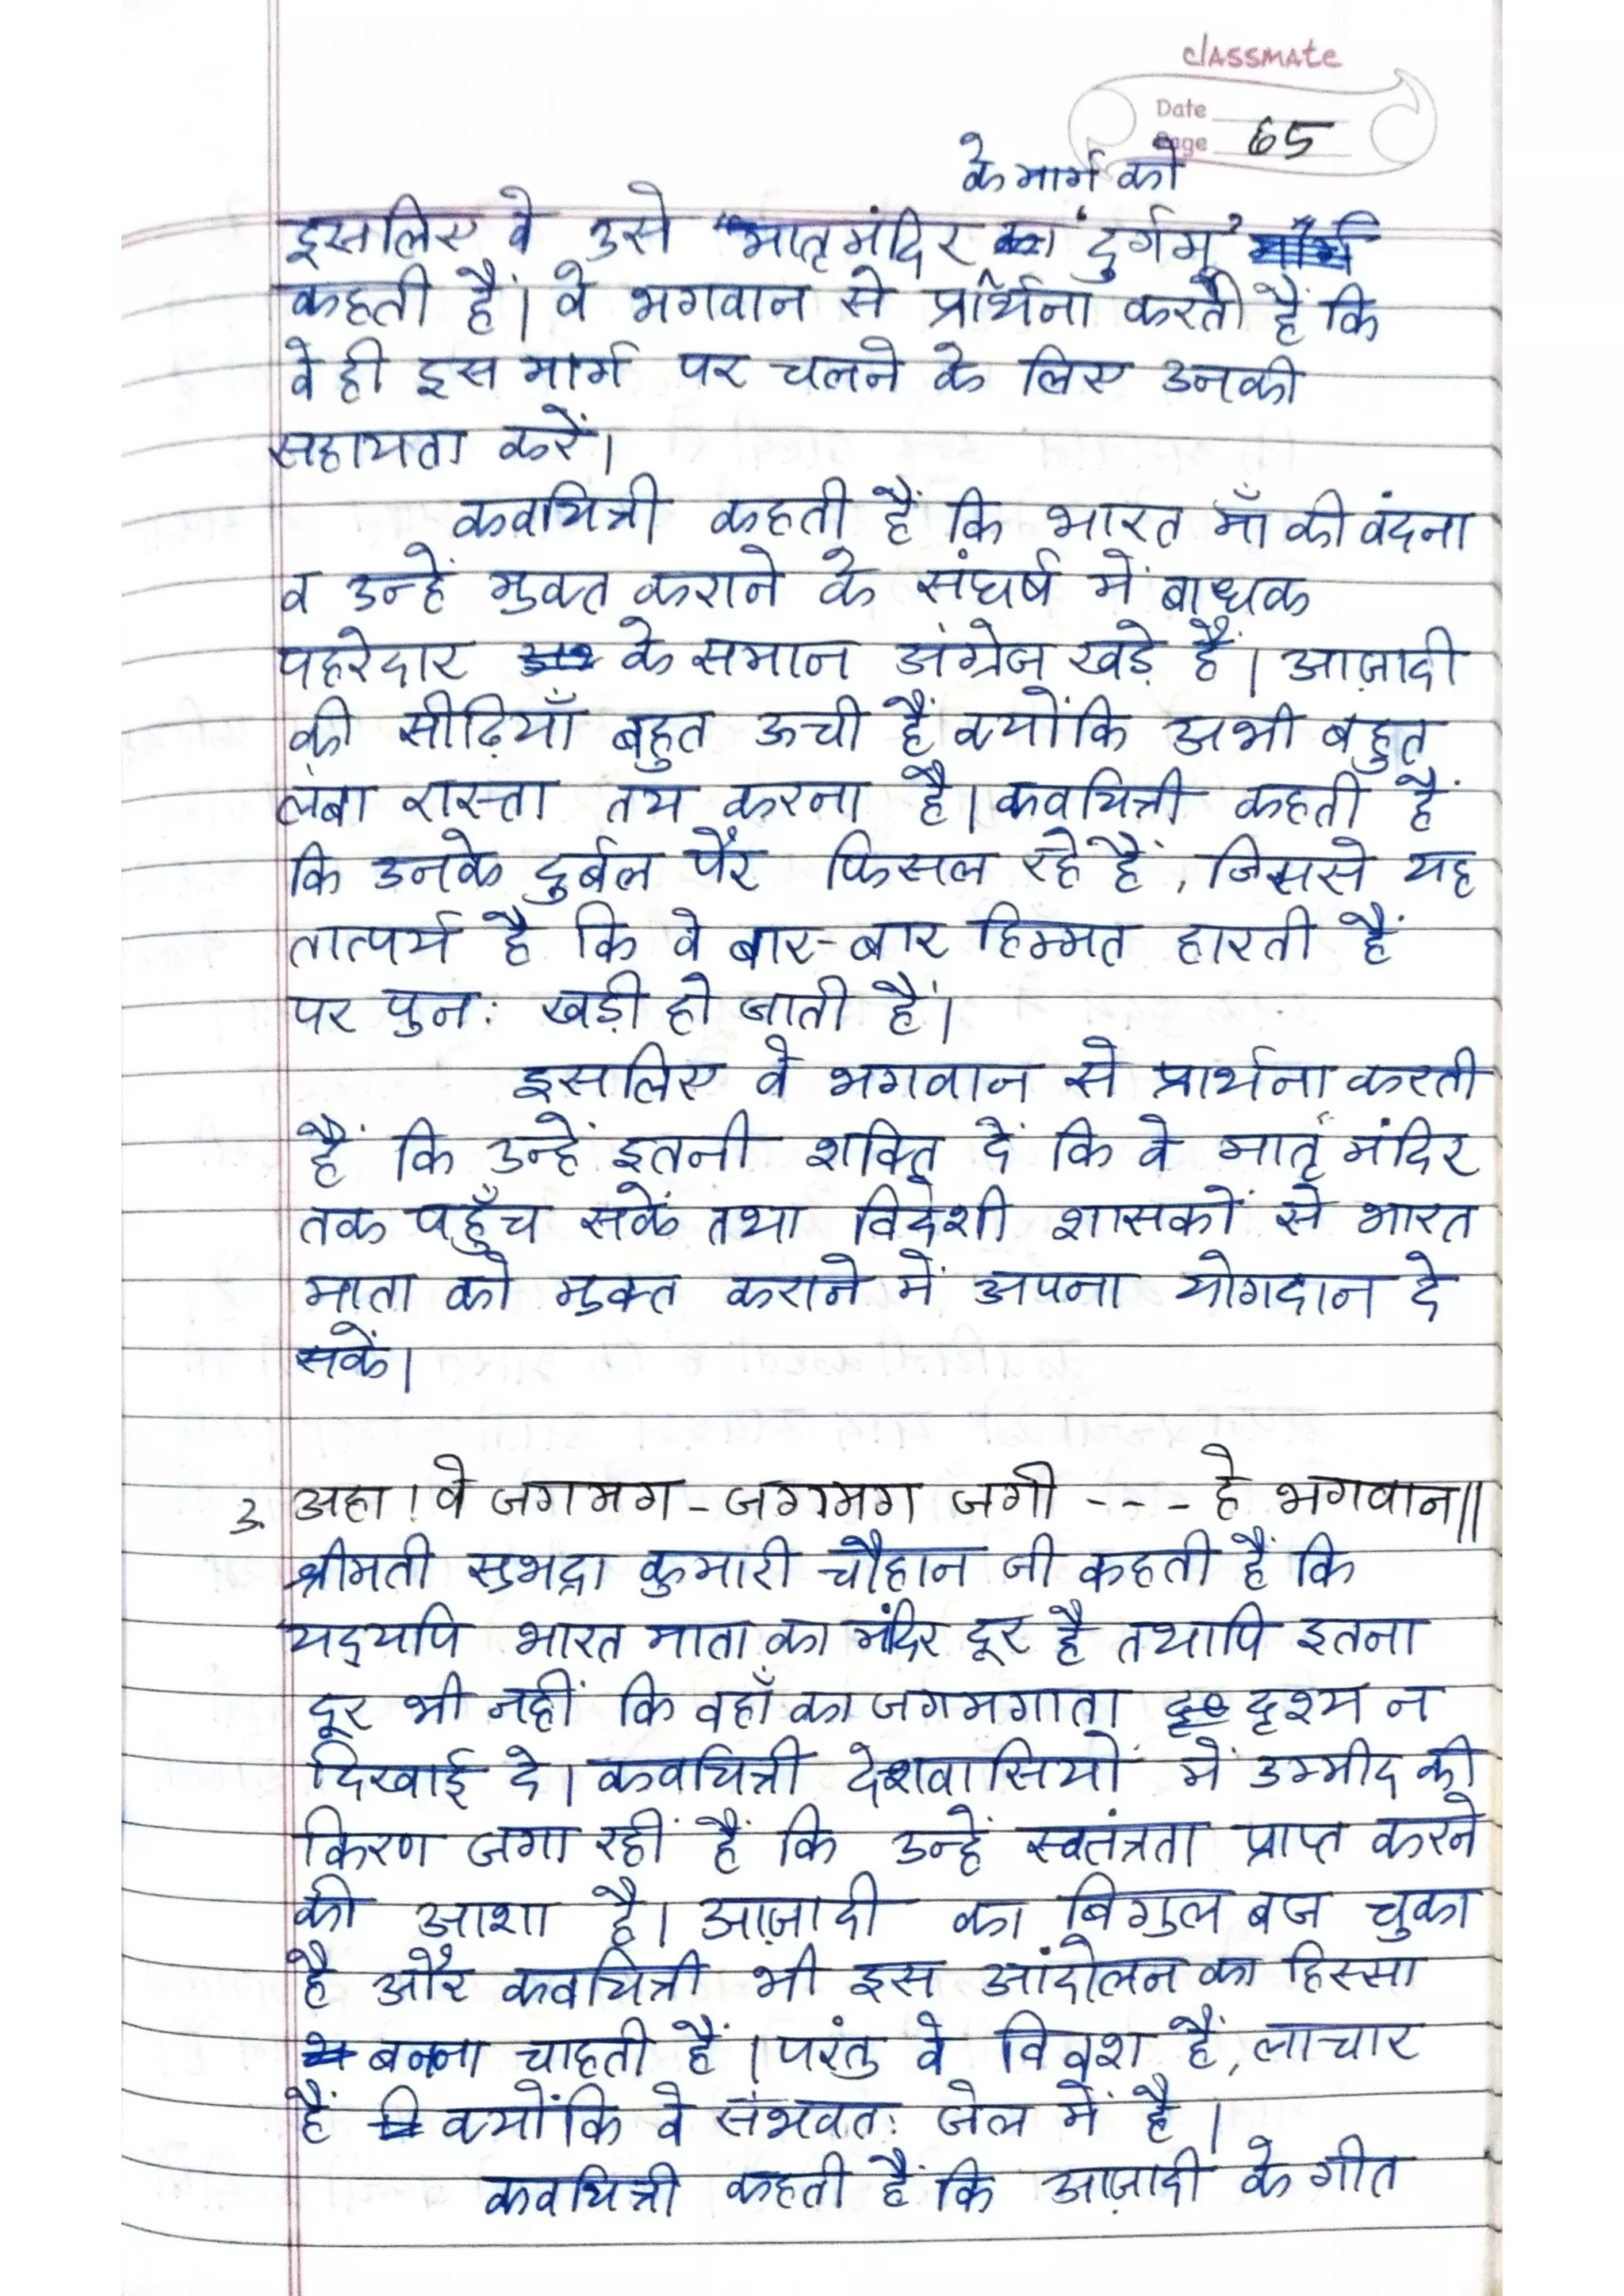 classmate
Date
Page 65
के मार्ग को
इसलिए वे उसे "मातृमंदिर दुर्गम'
कहती हैं। वे भगवान से प्रार्थना करती हैं कि
वे ही इस मार्ग पर चलने के लिए उनकी
सहायता करें।
कवयित्री कहती हैं कि भारत माँ की वंदना
व उन्हें मुक्त कराने के संघर्ष में बाधक
पहरेदार के समान अंग्रेज़ खड़े हैं। आज़ादी
की सीढ़ियाँ बहुत ऊची हैं क्योंकि अभी बहुत
लंबा रास्ता तय करना है। कवयित्री कहती हैं
कि उनके दुर्बल पैर फिसल रहे हैं, जिससे यह
तात्पर्य है कि वे बार-बार हिम्मत हारती हैं
पर पुन: खड़ी हो जाती हैं।
इसलिए वे भगवान से प्रार्थना करती
हैं कि उन्हें इतनी शक्ति दें कि वे मातृ मंदिर
तक पहुँच सकें तथा विदेशी शासकों से भारत
माता को मुक्त कराने में अपना योगदान दे
सकें।
3. अहा! वे जगमग-जगमग जगी --- हे भगवान॥
श्रीमती सुभद्रा कुमारी चौहान जी कहती हैं कि
यद्यपि भारत माता का मंदिर दूर है तथापि इतना
दूर भी नहीं कि वहाँ का जगमगाता दृश्य न
दिखाई दे। कवयित्री देशवासियों में उम्मीद की
किरण जगा रहीं हैं कि उन्हें स्वतंत्रता प्राप्त करने
की आशा है। आज़ादी का बिगुल बज चुका
है और कवयित्री भी इस आंदोलन का हिस्सा
बनना चाहती हैं। परंतु वे विवश हैं, लाचार
हैं क्योंकि वे संभवत: जेल में हैं।
कवयित्री कहती हैं कि आज़ादी के गीत